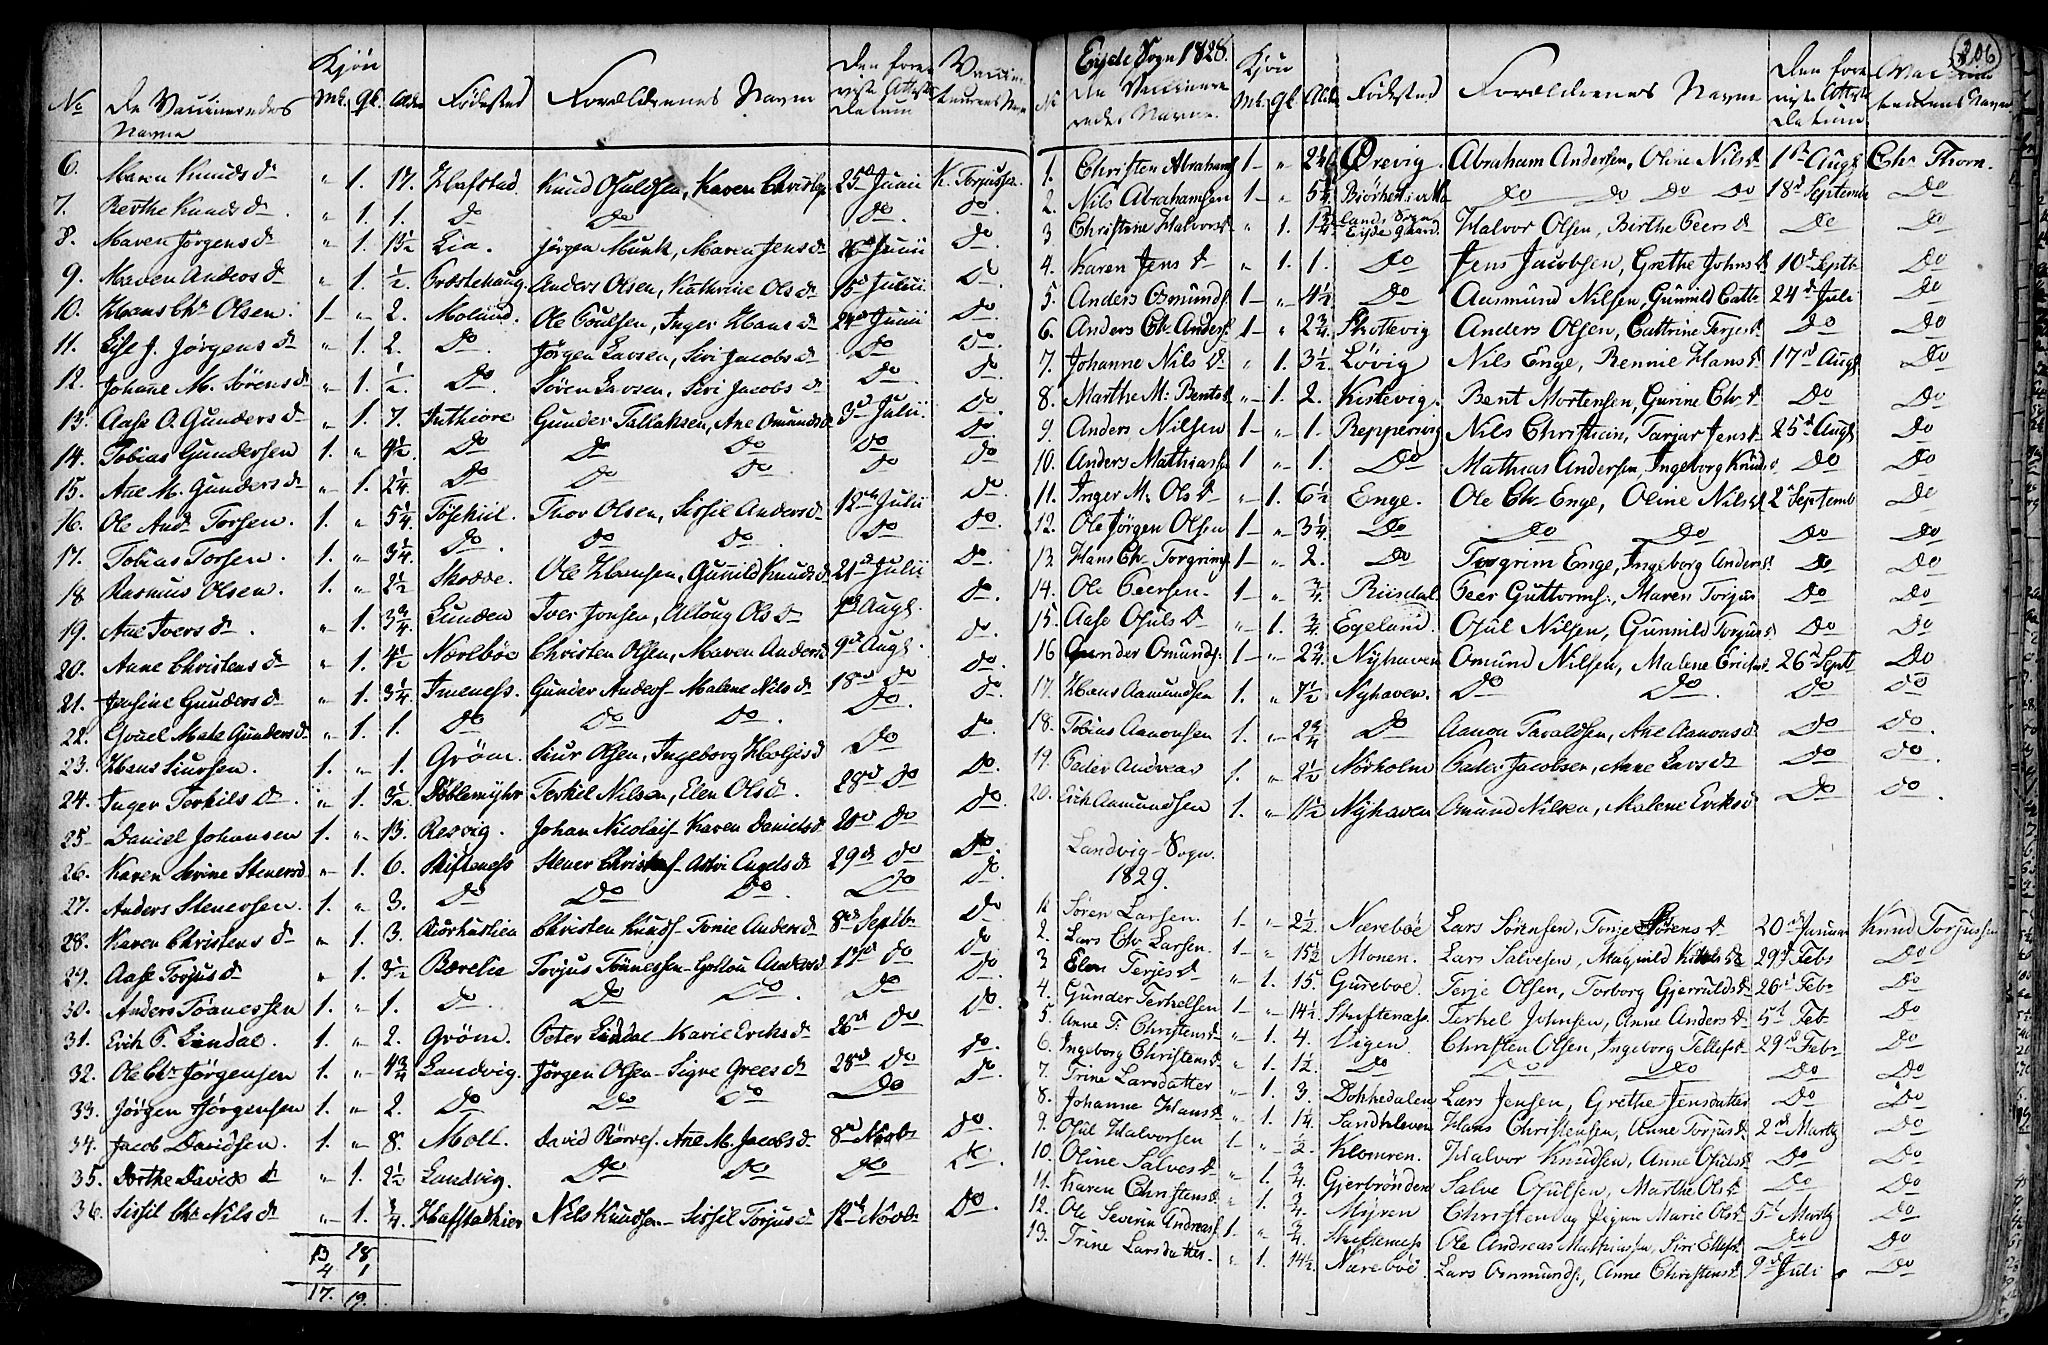 Kjön
No De Vaccineredes Navne Mk. Qk. Alder Födested Forældrenes Navn Den fore viste Attests Datum Vaccina teurens Navn
6. Maren Knuds D. " 1. 17. Hafstad. Knud Osuldsen, Karen 25d Junii K. Torjussen
7. Berthe Knuds D. " 1. 1. Do Do Do. Do.
8. Maren Jörgens D " 1. 1½ Lia. Jörgen Munk, Maren Jens D. 26d Junii Do.
9. Maren Anders D " 1. ½. Anders Olsen, Kathrine Ols D. 15d Julii Do.
10. Hans Chr. Olsen. 1. " 2. Molund. Ole Poulsen, Inger Hans D 24d Junii Do.
11. Else J. Jörgens D " 1. 2. Do. Jörgen Larsen, Siri Jacobs D Do Do.
12. Johanne M. Sörens D " 1. ½ Do. Sören Larsen, Siri Jacobs D Do Do.
13. Aase O. Gunders D " 1. 7. Inthiore Gunder Tallaksen, Ane Omunds D 3d Julii Do.
14. Tobias Gundersen 1. " 4½ Do Do Do Do Do
15. Ane M. Gunders D " 1. 2¼. Do Do Do Do Do
16. Ole And. Torsen. 1. " 5¼ Töskiil. Thor Olsen, Sissil Anders D 12te Julii Do.
17. Tobias Torsen. 1. " 3¼ Do. Do Do. Do Do.
18 Rasmus Olsen. 1. " 2½ Skodve. Ole Hansen, Gunild Knuds D. 21d Julii Do.
19. Ane Ivers D. " 1. 3¾. Lunden Iver Jonsen, Allaug Ols D Augt. Do.
20. Anne Christens D " 1. 4½ Næreböe Christen Olsen, Maren Anders D 9de Augt. Do.
21. Josine Gunders D " 1. 3¼. Imeness. Gunder Anders- Malene Nils D 18de Do Do.
22. Mate Gunders D " 1. 1. Do Do Do. Do. Do.
23. Hans Siursen. 1. " 1. Gröm. Siur Olsen, Ingeborg Holjes D Do Do.
24. Inger Terkils D. " 1. 3½ Döblemyhr Terkel Nilsen, Elen Ols D. 28d Do Do.
25. Daniel Johansen 1. " 13. Resvig. Johan Nicolais- Karen Daniels D 28d Do Do.
26. Karen Sevrine Steners D. " 1. 6. Skifteness Stener Christens- Engels D. 29d Do Do.
27. Anders Stenersen. 1. " 3. Do Do Do. Do Do.
28. Karen Christens D " 1. 3. Christen Knuds- Tonie Anders D 8de Septb. Do
29. Aase Torjus D " 1. 3½ Bærelie Torjus Tönnessen- Anders D. 17d Do Do.
30. Anders Tönnessen 1. " 1. Do. Do Do. Do Do.
31. Erik P. Lindal. 1. " 2. Gröm. Peter Lindal- Marie Eriks D 26d Do Do.
32. Ole Chr. Jörgensen 1. " 4¾ Landvig. Jörgen Olsen- Signe Grees D 28d Do Do.
33. Jörgen Jörgensen 1. " 2. Do Do Do. Do Do.
34. Jacob Davidsen. 1. " 8. Moll. David Ane M. Jacobs D 8de Novbr Do.
35. Dorthe Davids D " 1. 2½ Landvig. Do Do Do Do.
36. Sissil Chr. Nils D " 1. ¾ Nils Knudsen- Sissil Torjus D. 12d Novbr. Do.
13 18
4 1
17. 19.
206
Eyde Sogn 1828.
Kjön
No De Vaccine redes Navne. Mk. Qk. Alder Födested Forældrenes Navn Den fore viste Attests Datum Vaccina teurens Navn
1. Christen Abrahams 1 " 2¼ Örevig. Abraham Andersen, Oline Nils D 1ste Augt Chr. Thorn.
2. Nils Abrahamsen 1 " 5¼ Do Do Do Do 18d Septemb Do
3 Christine Halvors D " 1. 1¾ Lands Sogn Eyde Halvor Olsen, Birthe Peers D Do Do
4. Karen Jens D " 1. 1. Do Jens Jacobsen, Grethe Johns D 10d Septb. Do
5. Anders Osmunds. 1 " 4½ Do Aasmund Nilsen, Gunild Cath. 24d Juli Do
6. Anders Chr. Anders. 1 " 2¾ Skottevig Anders Olsen, Cattrine Terjes D Do Do
7. Johanne Nils D " 1. 3½ Lövig Nils Enge, Rennie Hans D 17d Augt Do
8. Marthe M. Bents D " 1. 2. Kistevig. Bent Mortensen, Gurine Chr. D Do Do
9. Anders Nilsen 1 " 1. Reppervig Nils Christian, Tarjar Jens D 25d Augt Do
10. Anders Mathiassen 1 " 1. Do Mathias Andersen, Ingeborg Knuds Do Do
11. Inger M. Ols D " 1. 6½ Enge. Ole Chr. Enge, Oline Nils D 2d Septemb Do
12. Ole Jörgen Olsen 1 " 3¼ Do Do Do Do Do
13. Hans Chr. Torgrims. 1 " 2. Do Torgrim Enge, Ingeborg Anders. Do Do
14. Ole Peersen. 1 " ¾. Riisdal Peer Guttorms., Maren Torjus Do Do
15. Aase Osuls D " 1. ¾. Egeland. Osul Nilsen, Gunnild Torjus D Do Do
16 Gunder Omunds. 1 " 2¾ Nyhaven Omund Nilsen, Malene Erichs. 26d Septb. Do
17. Hans Aamundsen 1. " 7½ Nyhaven. Do Do. Do Do
18. Tobias Aanonsen 1. " 2¾ Do Aanon Tavaldsen, Ane Aanons D Do Do.
19. Peder Andreas 1. " 2½ Nörholm Peder Jacobsen, Anne Lars D Do Do.
20. Erich Aamundsen 1. " 11½ Nyhaven Omund Nilsen, Malene Eriks D Do Do.
Landvig Sogn.
1829.
1. Sören Larsen. 1. " 2½. Næreböe Lars Sörensen, Tonje Sörens D 20de Januar Knud Torjussen
2. Lars Chr. Larsen. 1 " 15½ Monen. Lars Salvesen, Magnild 29d Feb. Do
3 Elen Terjes D " 1. 15. Gurebve. Terje Olsen, Torborg Gjerrulds D 26d Feb. Do
4. Gunder Terkelsen 1 " 14½ Skiftenæss. Terkel Johnsen, Anne Anders D 5d Feb. Do
5. Anne T. Christens D. " 1. 4. Vigen. Christen Olsen, Ingeborg Tellefs D 29d Feb. Do
6. Ingeborg Christens D " 1. 1½. Do Do Do Do Do
7. Trine Larsdatter " 1. 3. Dokkedalen Lars Jensen, Grethe Jensdatter Do Do
8. Johanne Hans D " 1. 1¼. Sandkleven Hans Christensen, Anne Torjus D. 2d Marty Do
9. Osul Halvorsen 1 " ½. Klomren. Halvor Knudsen, Anne Osuls D Do Do
10. Oline Salves D " 1. ¾. Gjerbrönden Salve Osulsen, Marthe Ols D Do Do
11. Karen Christens D " 1. ¾. Myren Christen Marie Ols D 5d Marty Do
12. Ole Severin Andreas 1. " ¾. Skiftenæss Ole Andreas Mathiassen, Siri Ellefs D Do Do
13. Trine Larsdatter. " 1. 14½. Næreböe. Lars Osmunds., Anne Christens D 9d Juli Do